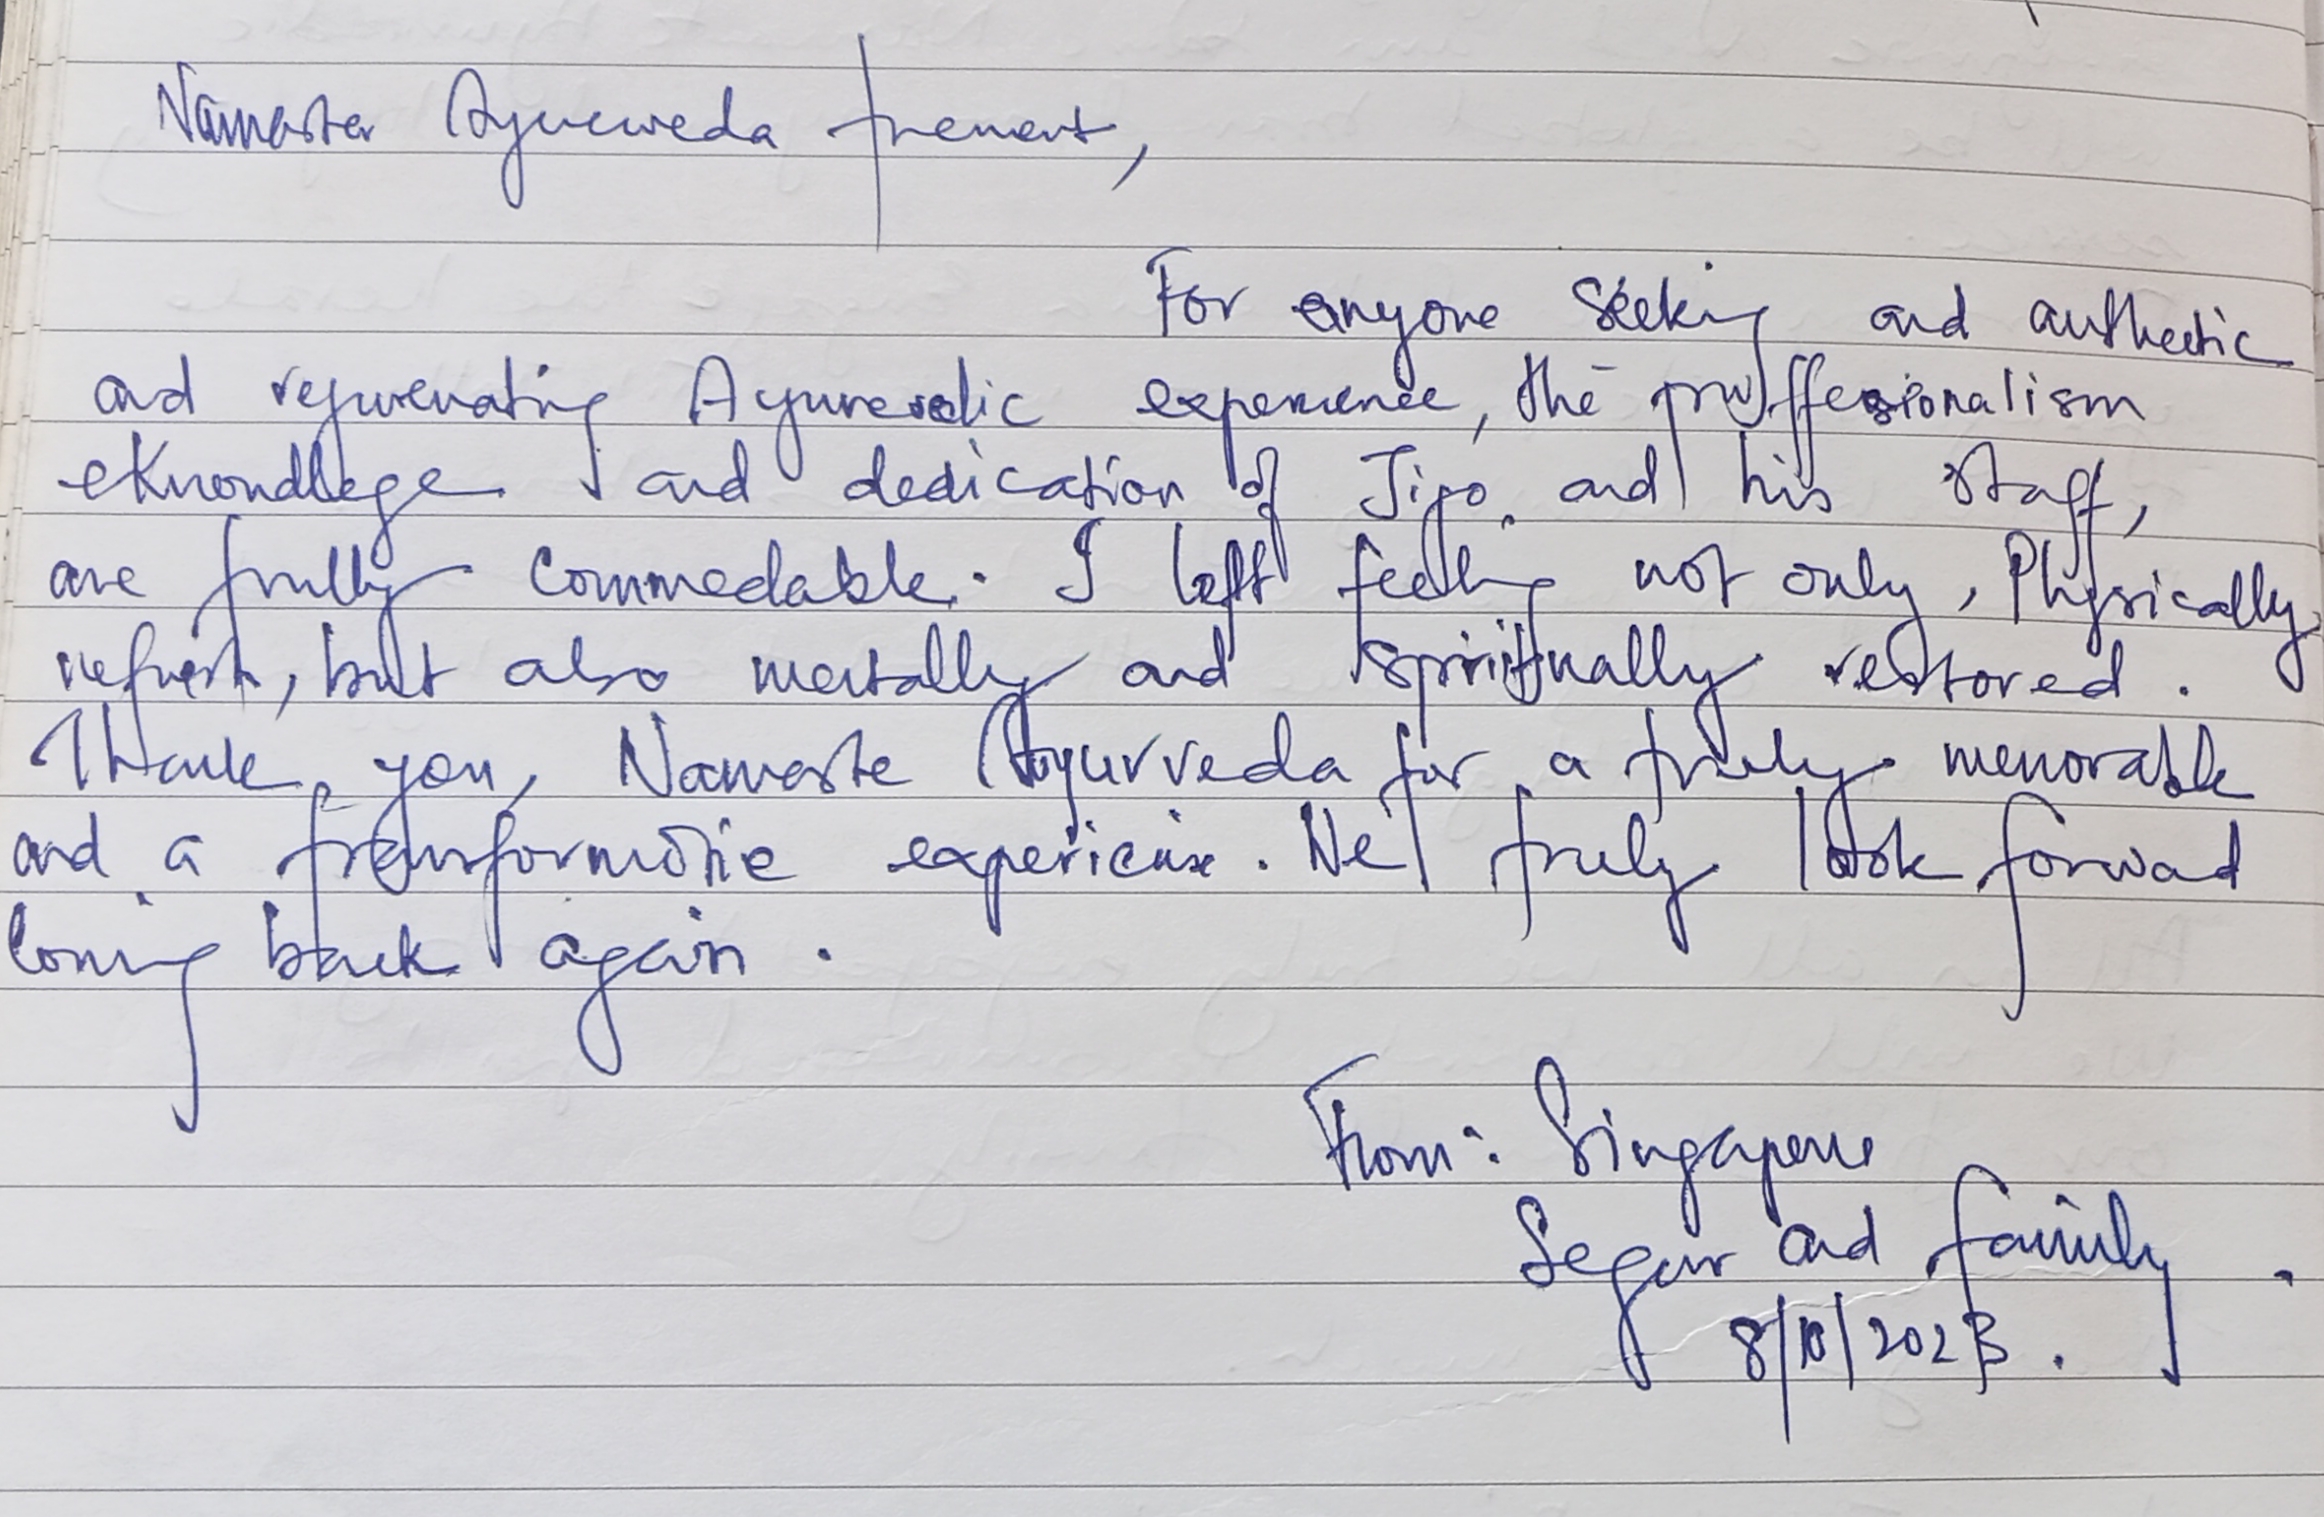 Namaster Ayurveda
For anyone seeking and authectic
and rejuvenating Ayurvedic experience, the proffessionalism
and dedication of Jijo and his staff,
are trully commedable. I left feeling not only, Physically
refresh, but also mentally and spiritually restored.
Thank you, Namaste Ayurveda for a truly memorable
and a experience. We truly look forwad
coming back again.
From: Singapore
and family.
8/10/2023.